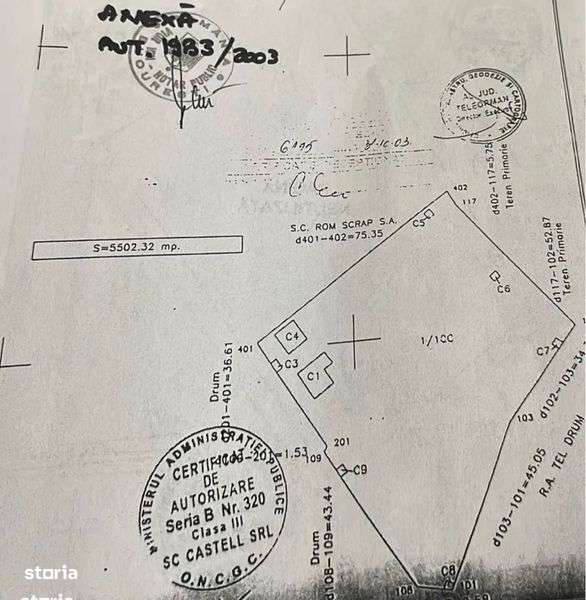 ANEXĂ
AUT. 1983/2003
NOTAR PUBLIC
JUD.
TELEORMAN
Director Executiv
S=5502.32 mp.
S.C. ROM SCRAP S.A.
d401-402=75.35
402
117
d402-117=5.75
Teren Primarie
d117-102=52.87
Teren Primarie
C5
C6
C7
1/1CC
401
C4
C3
C1
Drum
d102-103=34
103
R.A. TEL DRUM
d103-101=45.05
201
109
C9
Drum
d108-109=43.44
108
C8
101
MINISTERUL ADMINISTRATIEI PUBLICE
CERTIFICAT
DE
AUTORIZARE
Seria B Nr. 320
Clasa III
SC CASTELL SRL
O.N.C.G.C.
storia
storia